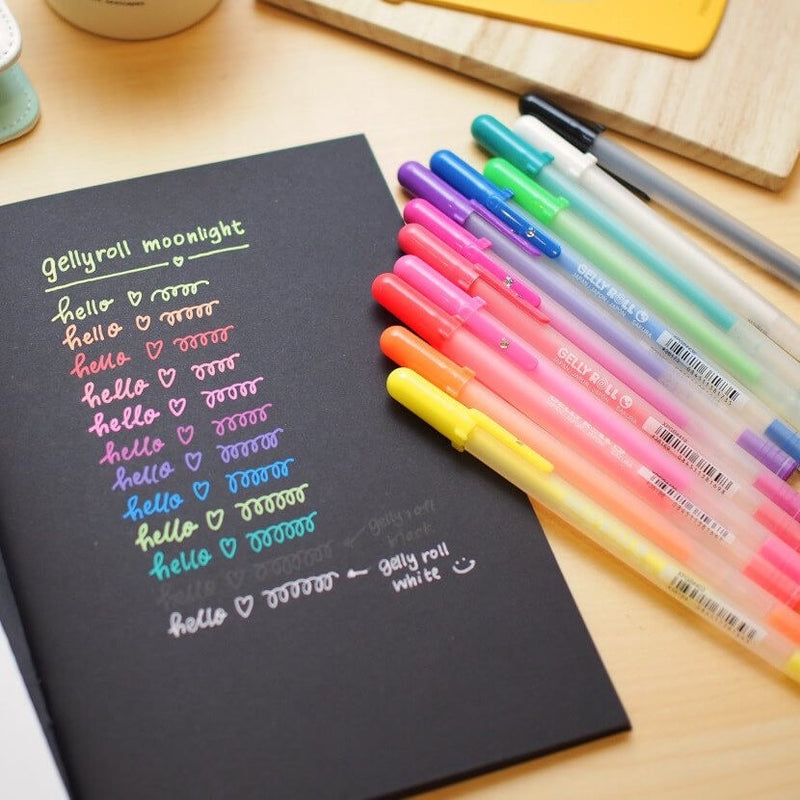 gellyroll moonlight
hello
hello
hello
hello
hello
hello
hello
hello
hello
hello
hello
gelly roll
black
hello
gelly roll
white
GELLY ROLL
SAKURA
GELLY ROLL
SAKURA